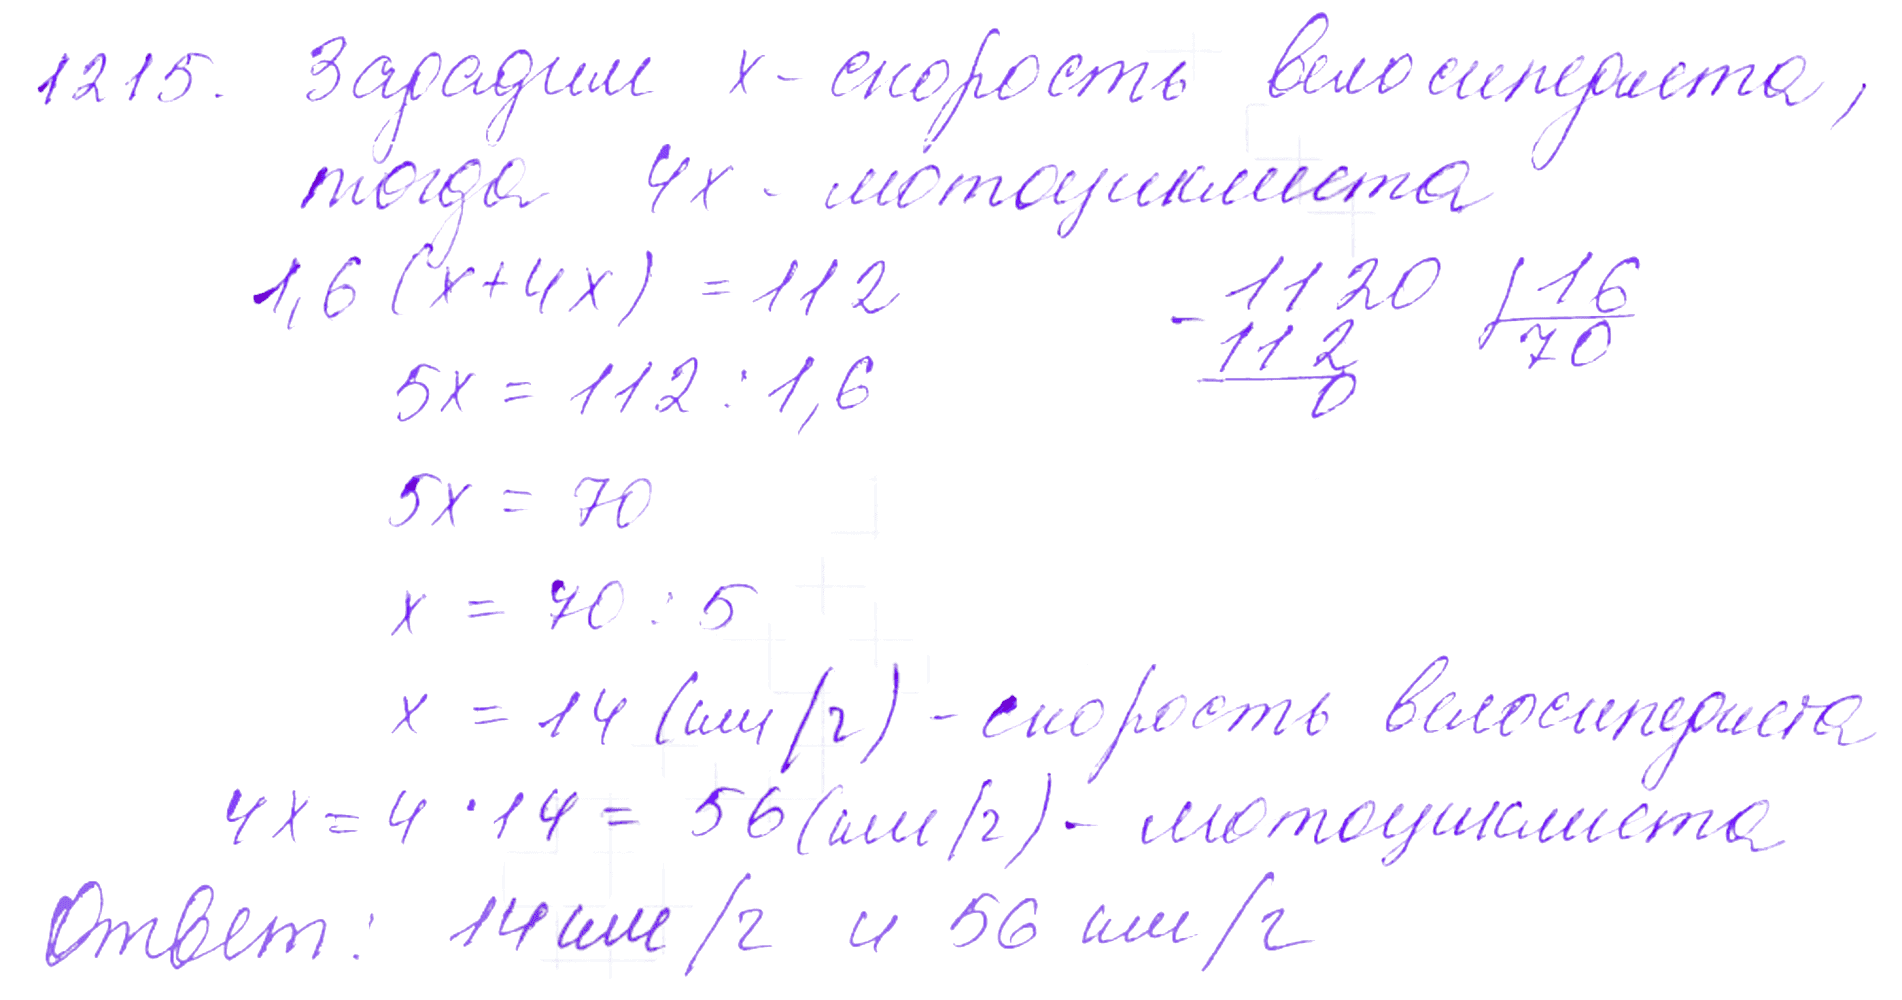 1215. Зададим х - скорость велосипедиста,
тогда 4х - мотоциклиста
1,6 (х+4х) = 112
5х = 112 : 1,6
5х = 70
х = 70 : 5
х = 14 (км/ч) - скорость велосипедиста
4х = 4 · 14 = 56 (км/ч) - мотоциклиста
Ответ: 14 км/ч и 56 км/ч
- 1120 | 16
112 70
0